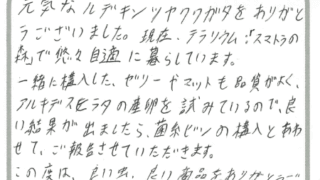 元気なルデキンツヤクワガタをありがと
うございました。現在、テラリウム：「スマトラの
森」で悠々自適に暮らしています。
一緒に購入した、ゼリーやマットも品質がよく、
アルキデスヒラタの産卵を試みているので、良
い結果が出ましたら、菌糸ビンの購入とあわ
せて、ご報告させていただきます。
この度は、良い虫、良い商品をありがとうご